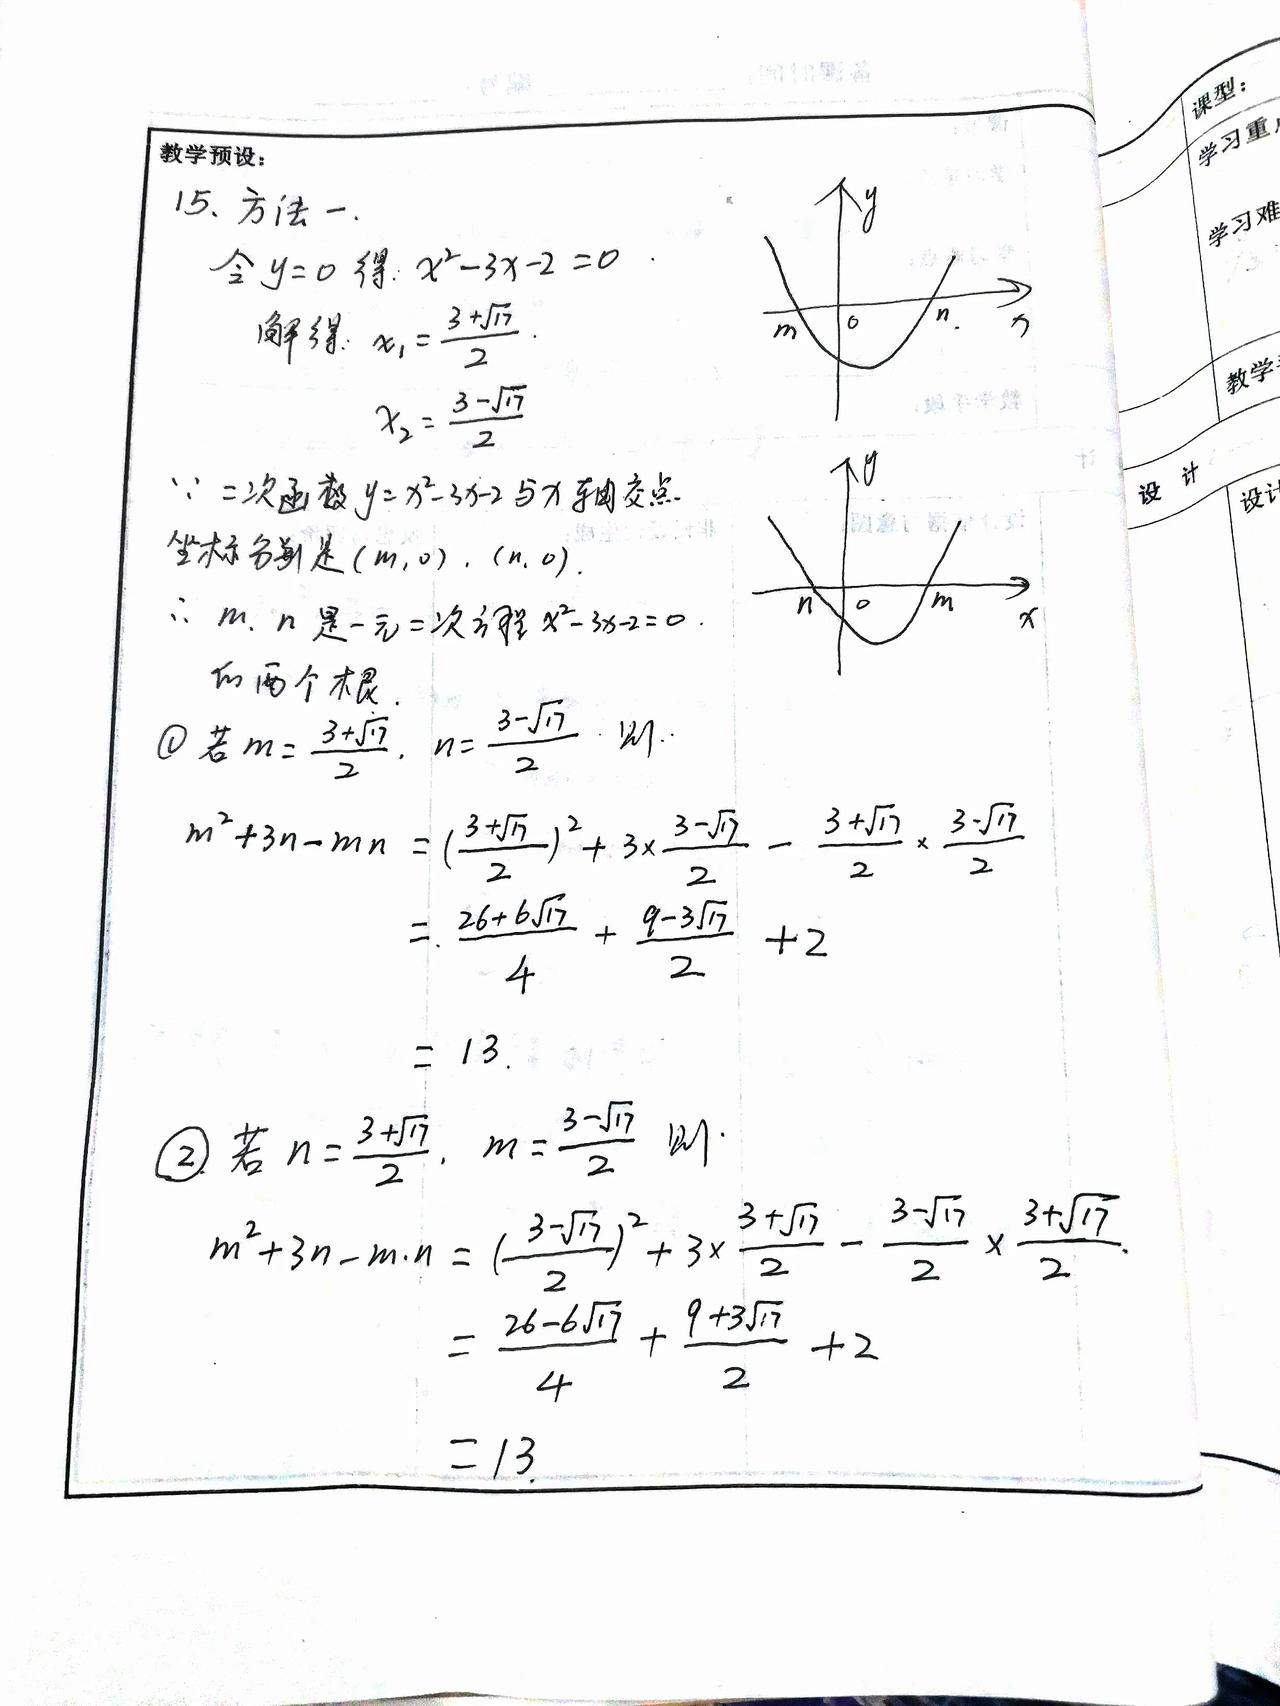 教学预设：
15、方法一.
令 y=0 得: x²-3x-2=0.
解得: x₁=(3+√17)/2.
x₂=(3-√17)/2
∵二次函数 y=x²-3x-2与x轴交点
坐标分别是(m,0), (n,0).
∴ m、n 是一元二次方程 x²-3x-2=0.
的两个根.
① 若 m=(3+√17)/2, n=(3-√17)/2 则:
m²+3n-mn =((3+√17)/2)²+3×(3-√17)/2-(3+√17)/2×(3-√17)/2
=(26+6√17)/4+(9-3√17)/2+2
= 13.
② 若 n=(3+√17)/2, m=(3-√17)/2 则.
m²+3n-m·n =((3-√17)/2)²+3×(3+√17)/2-(3-√17)/2×(3+√17)/2.
=(26-6√17)/4+(9+3√17)/2+2
=13.
y
m
o
n.
x
y
n
o
m
x
课型：
学习重
学习难
教学
设 计
设计